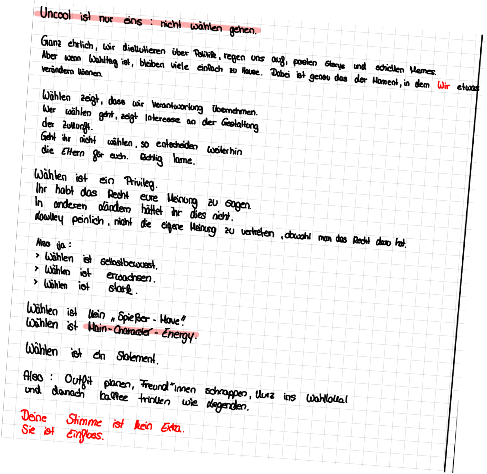 Uncool ist nur eins: nicht wählen gehen.
Ganz ehrlich, wir diskutieren über Politik, regen uns auf, posten Storys und schicken Memes.
Aber wenn Wahltag ist, bleiben viele einfach zu Hause. Dabei ist genau das der Moment, in dem Wir etwas
verändern können.
Wählen zeigt, dass wir Verantwortung übernehmen.
Wer wählen geht, zeigt Interesse an der Gestaltung
der Zukunft.
Geht ihr nicht wählen, so entscheiden weiterhin
die Eltern für euch. Richtig lame.
Wählen ist ein Privileg.
Ihr habt das Recht eure Meinung zu sagen.
In anderen Ländern hättet ihr dies nicht.
lowkey peinlich, nicht die eigene Meinung zu vertreten, obwohl man das Recht dazu hat.
Also ja:
> Wählen ist selbstbewusst.
> Wählen ist erwachsen.
> Wählen ist stark.
Wählen ist kein „Spießer-Move".
Wählen ist Main-Character-Energy.
Wählen ist ein Statement.
Also: Outfit planen, Freund*innen schnappen, kurz ins Wahllokal
und danach Kaffee trinken wie Legenden.
Deine Stimme ist kein Extra.
Sie ist Einfluss.